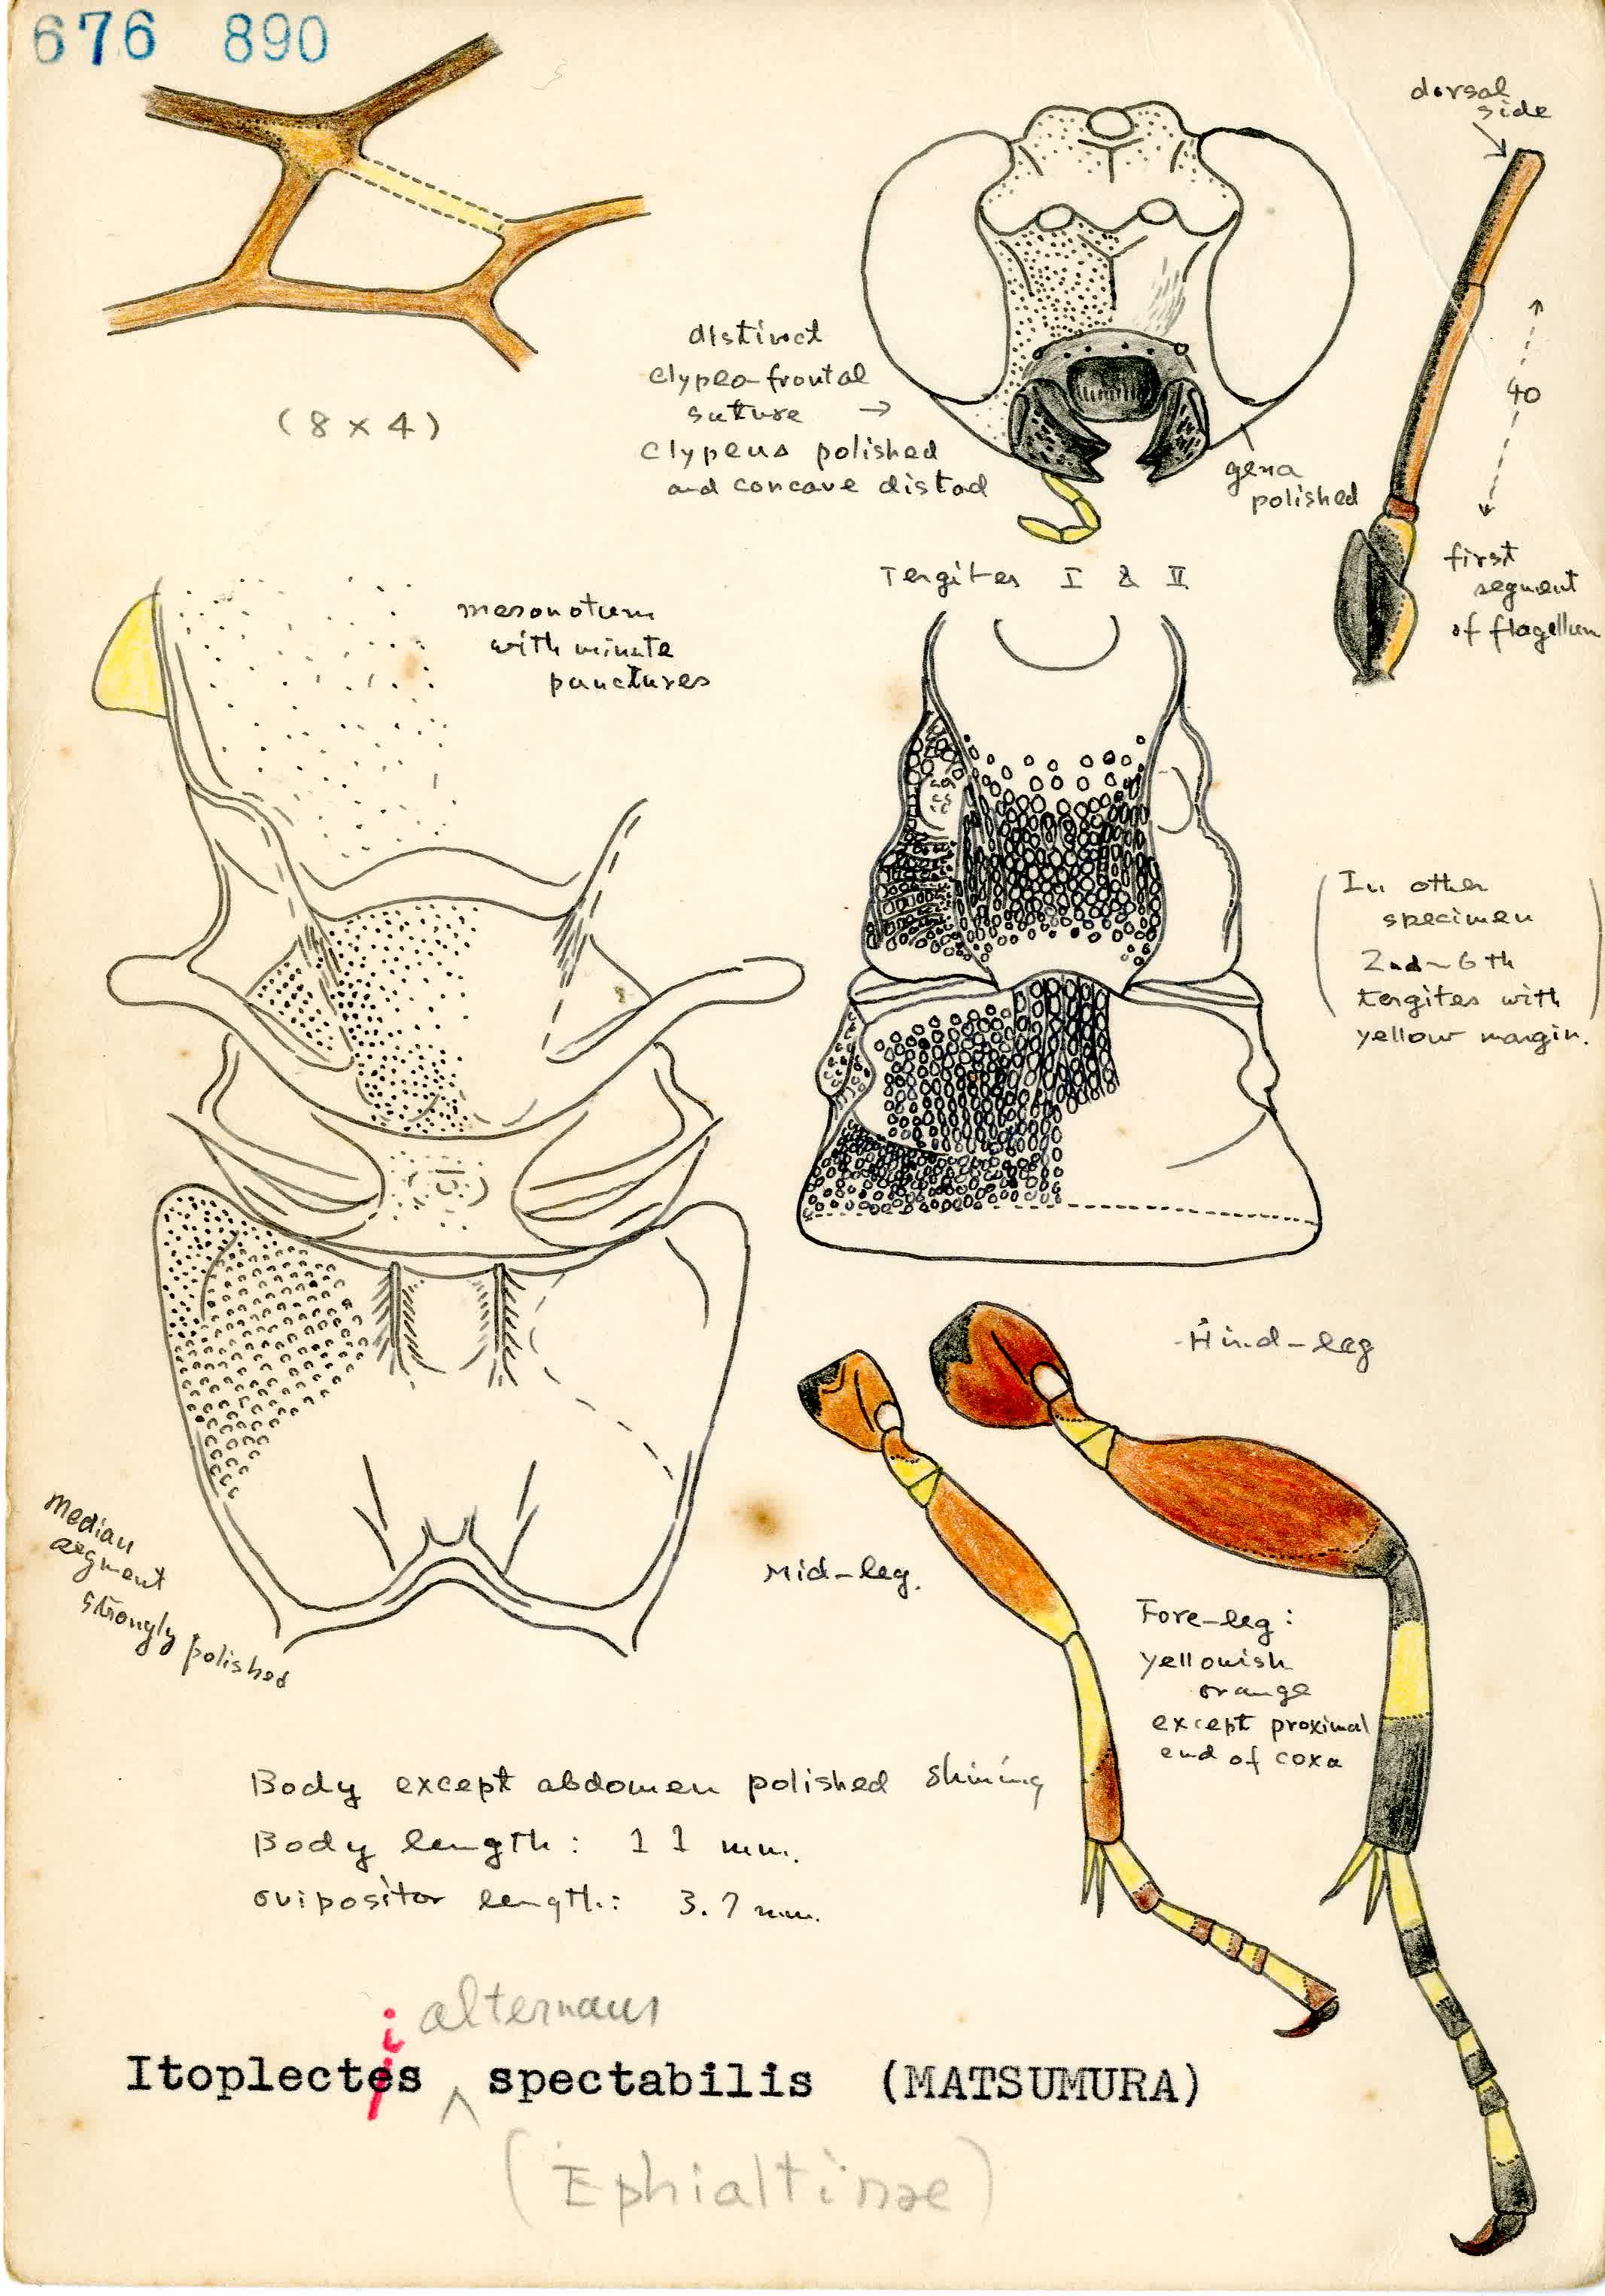 676 890
dorsal
side
(8 x 4)
distinct
clypeo-frontal
suture →
clypeus polished
and concave distad
gena
polished
40
first
segment
of flagellum
Tergites I & II
mesonotum
with minute
punctures
(In other
specimen
2nd~6th
tergites with
yellow margin.)
Hind-leg
Mid-leg.
Fore-leg:
yellowish
orange
except proximal
end of coxa
Median
segment
strongly polished
Body except abdomen polished shining
Body length: 11 mm.
ovipositor length: 3.7 mm.
i alternans
Itoplectes ^ spectabilis (MATSUMURA)
(Ephialtinae)